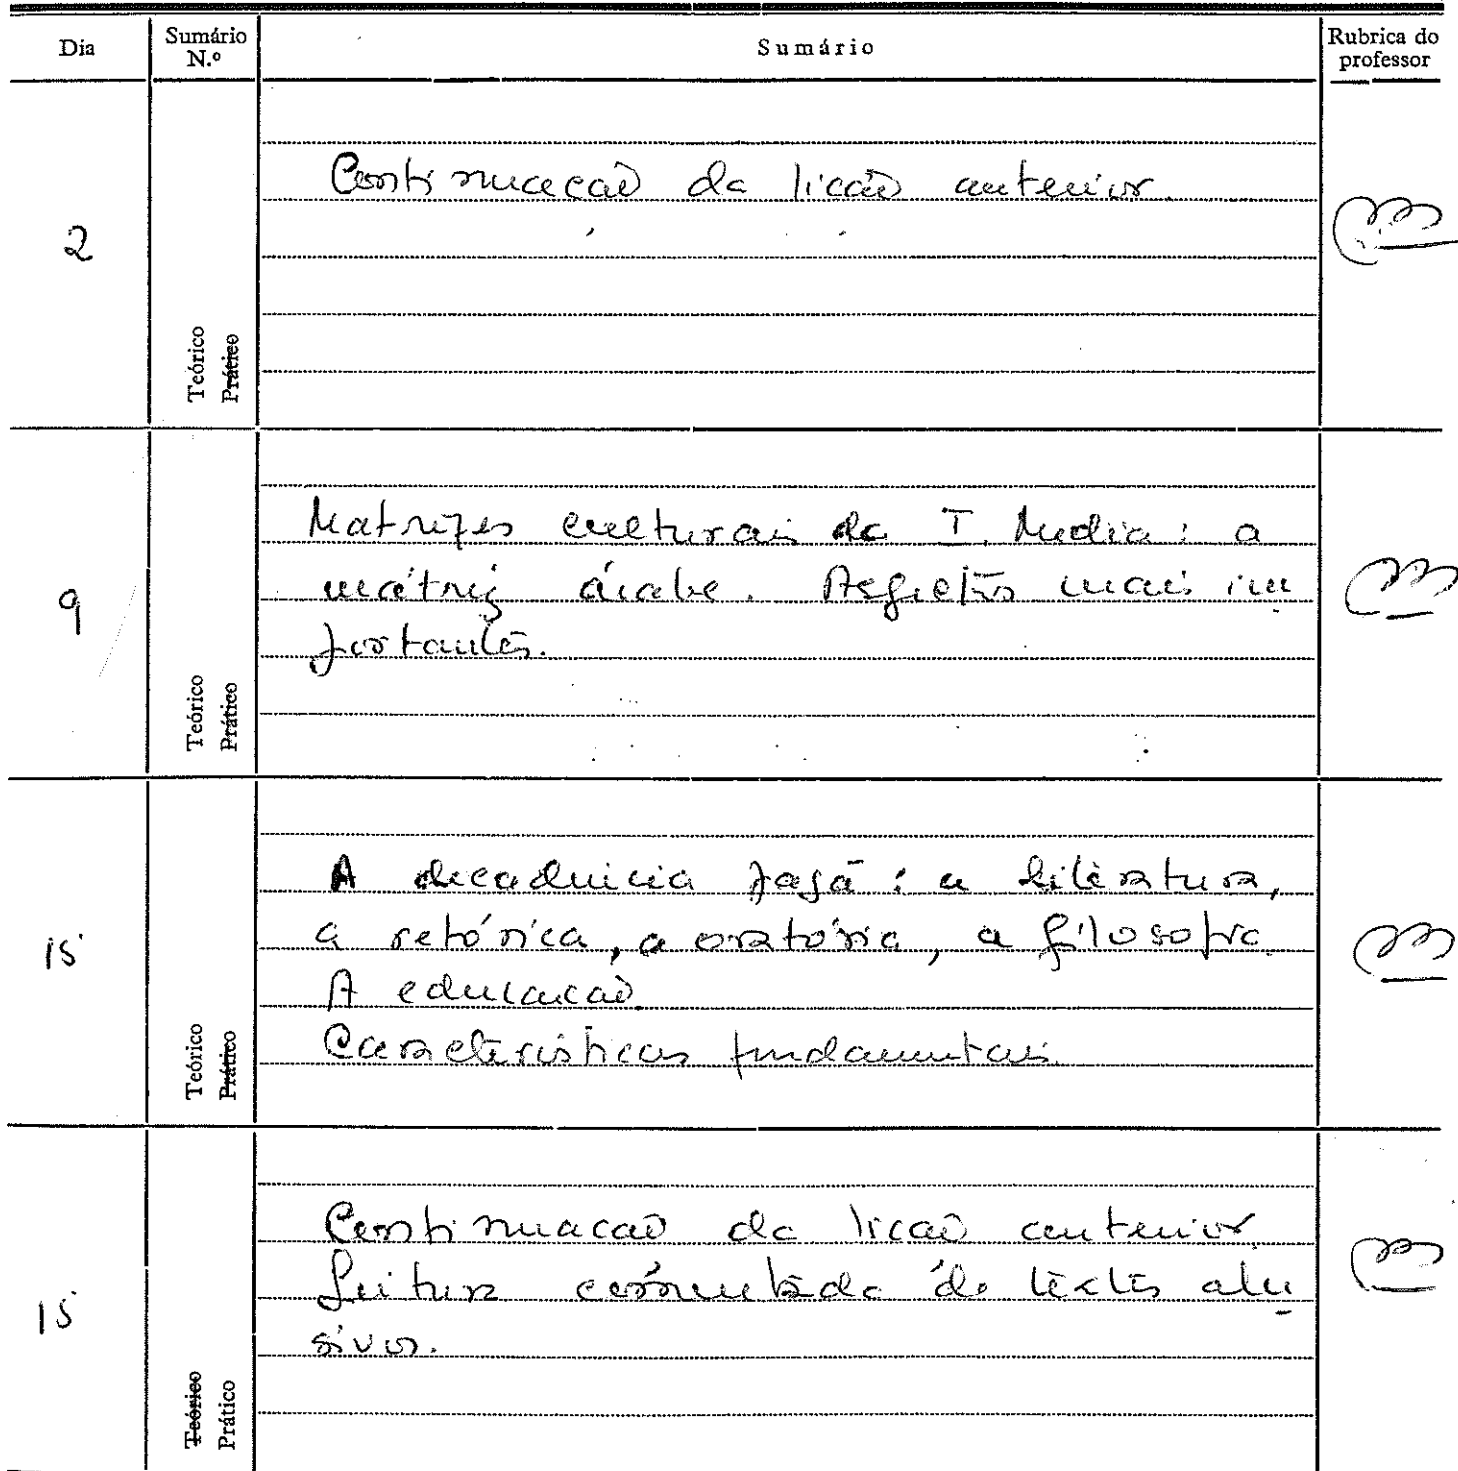 Dia
Sumário N.º
Sumário
Rubrica do professor
2
Teórico
Prático
Continuação da lição anterior.
9
Teórico
Prático
Matrizes culturais da I. Media: a
matriz árabe. Aspectos mais im
portantes.
15
Teórico
Prático
A decadência pagã: a literatura,
a retórica, a oratória, a filosofia
A educação
Características fundamentais
15
Teórico
Prático
Continuação da lição anterior
Leitura comentada de textos alu
sivos.